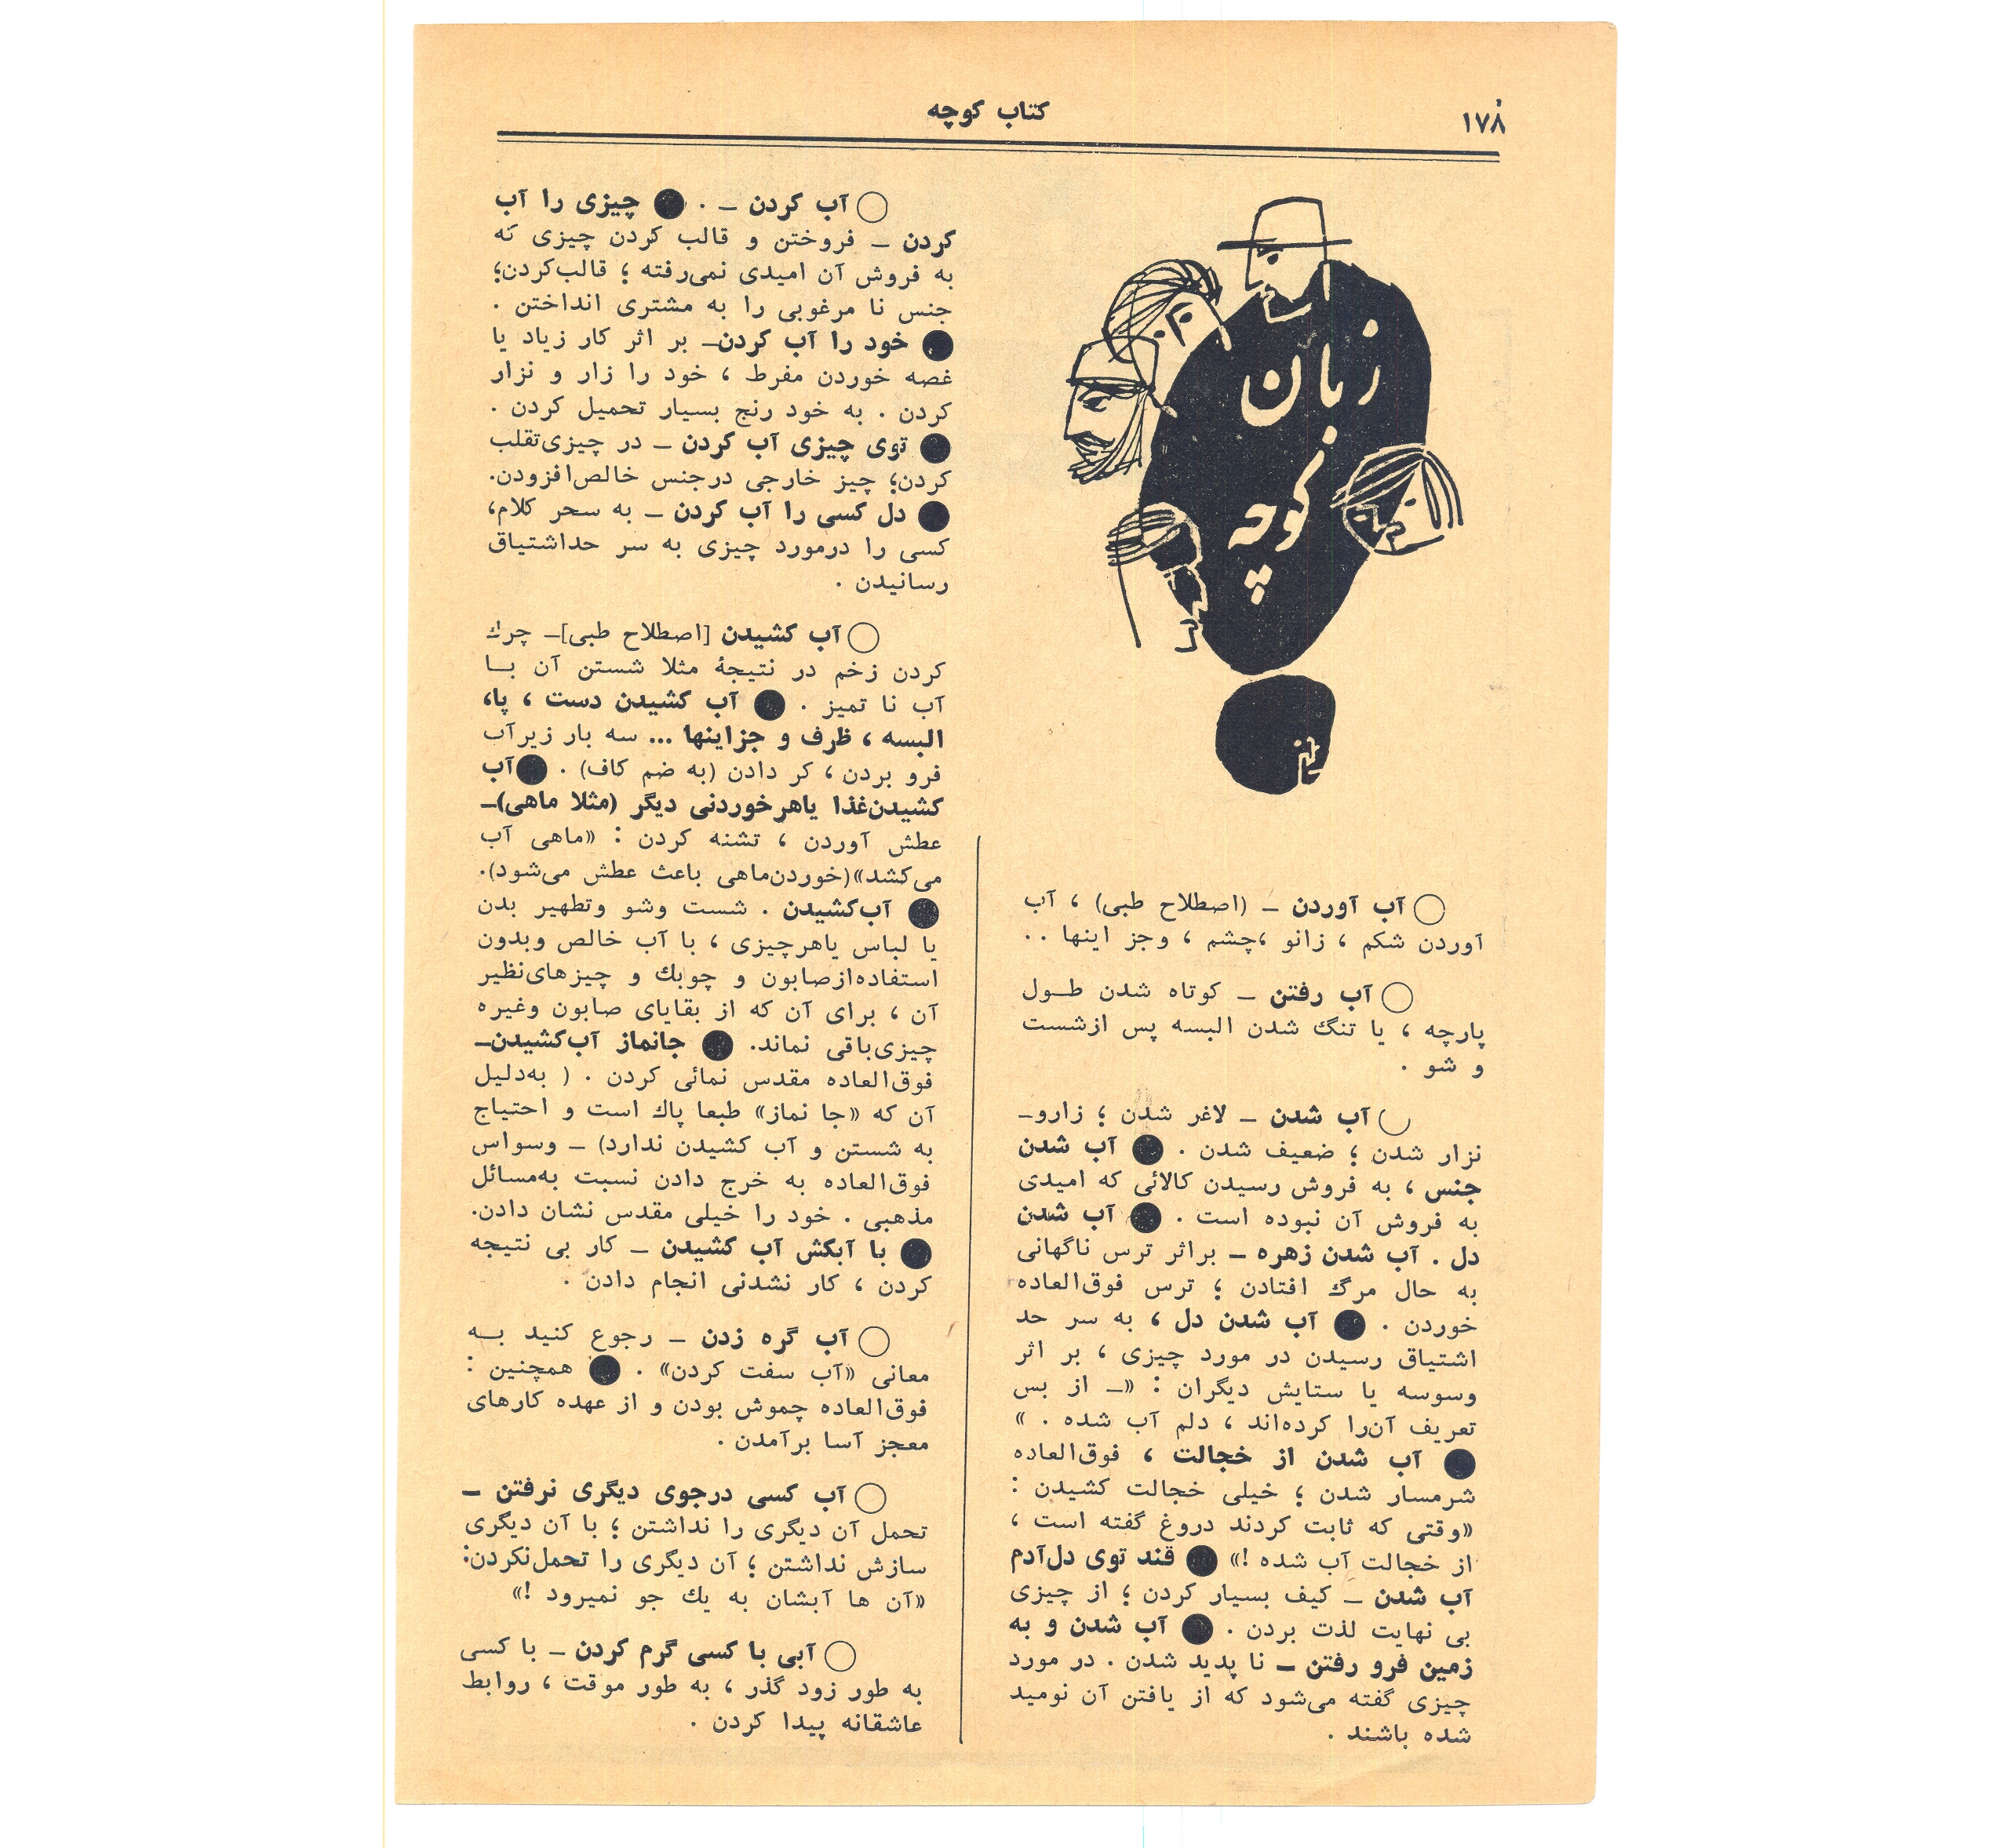 ۱۷۸
کتاب کوچه
زبان
کوچه
○ آب آوردن – (اصطلاح طبی) ، آب
آوردن شکم ، زانو ،چشم ، وجز اینها ..
○ آب رفتن – کوتاه شدن طول
پارچه ، یا تنگ شدن البسه پس ازشست
و شو .
○ آب شدن – لاغر شدن ؛ زارو–
نزار شدن ؛ ضعیف شدن . ● آب شدن
جنس ، به فروش رسیدن کالائی که امیدی
به فروش آن نبوده است . ● آب شدن
دل . آب شدن زهره – براثر ترس ناگهانی
به حال مرگ افتادن ؛ ترس فوق‌العاده
خوردن . ● آب شدن دل ، به سر حد
اشتیاق رسیدن در مورد چیزی ، بر اثر
وسوسه یا ستایش دیگران : «– از بس
تعریف آن‌را کرده‌اند ، دلم آب شده . »
● آب شدن از خجالت ، فوق‌العاده
شرمسار شدن ؛ خیلی خجالت کشیدن :
«وقتی که ثابت کردند دروغ گفته است ،
از خجالت آب شده !» ● قند توی دل‌آدم
آب شدن – کیف بسیار کردن ؛ از چیزی
بی نهایت لذت بردن . ● آب شدن و به
زمین فرو رفتن – نا پدید شدن . در مورد
چیزی گفته می‌شود که از یافتن آن نومید
شده باشند .
○ آب کردن – . ● چیزی را آب
کردن – فروختن و قالب کردن چیزی که
به فروش آن امیدی نمی‌رفته ؛ قالب‌کردن؛
جنس نا مرغوبی را به مشتری انداختن .
● خود را آب کردن– بر اثر کار زیاد یا
غصه خوردن مفرط ، خود را زار و نزار
کردن . به خود رنج بسیار تحمیل کردن .
● توی چیزی آب کردن – در چیزی‌تقلب
کردن؛ چیز خارجی درجنس خالص‌افزودن.
● دل کسی را آب کردن – به سحر کلام،
کسی را درمورد چیزی به سر حداشتیاق
رسانیدن .
○ آب کشیدن [اصطلاح طبی]– چرك
کردن زخم در نتیجۀ مثلا شستن آن با
آب نا تمیز . ● آب کشیدن دست ، پا،
البسه ، ظرف و جزاینها ... سه بار زیرآب
فرو بردن ، کر دادن (به ضم کاف) . ● آب
کشیدن‌غذا یاهرخوردنی دیگر (مثلا ماهی)–
عطش آوردن ، تشنه کردن : «ماهی آب
می‌کشد»(خوردن‌ماهی باعث عطش می‌شود).
● آب‌کشیدن . شست وشو وتطهیر بدن
یا لباس یاهرچیزی ، با آب خالص وبدون
استفاده‌ازصابون و چوبك و چیزهای‌نظیر
آن ، برای آن که از بقایای صابون وغیره
چیزی‌باقی نماند. ● جانماز آب‌کشیدن–
فوق‌العاده مقدس نمائی کردن . ( به‌دلیل
آن که «جا نماز» طبعا پاك است و احتیاج
به شستن و آب کشیدن ندارد) – وسواس
فوق‌العاده به خرج دادن نسبت به‌مسائل
مذهبی . خود را خیلی مقدس نشان دادن.
● با آبکش آب کشیدن – کار بی نتیجه
کردن ، کار نشدنی انجام دادن .
○ آب گره زدن – رجوع کنید به
معانی «آب سفت کردن» . ● همچنین :
فوق‌العاده چموش بودن و از عهده کارهای
معجز آسا برآمدن .
○ آب کسی درجوی دیگری نرفتن –
تحمل آن دیگری را نداشتن ؛ با آن دیگری
سازش نداشتن ؛ آن دیگری را تحمل‌نکردن:
«آن ها آبشان به یك جو نمیرود !»
○ آبی با کسی گرم کردن – با کسی
به طور زود گذر ، به طور موقت ، روابط
عاشقانه پیدا کردن .